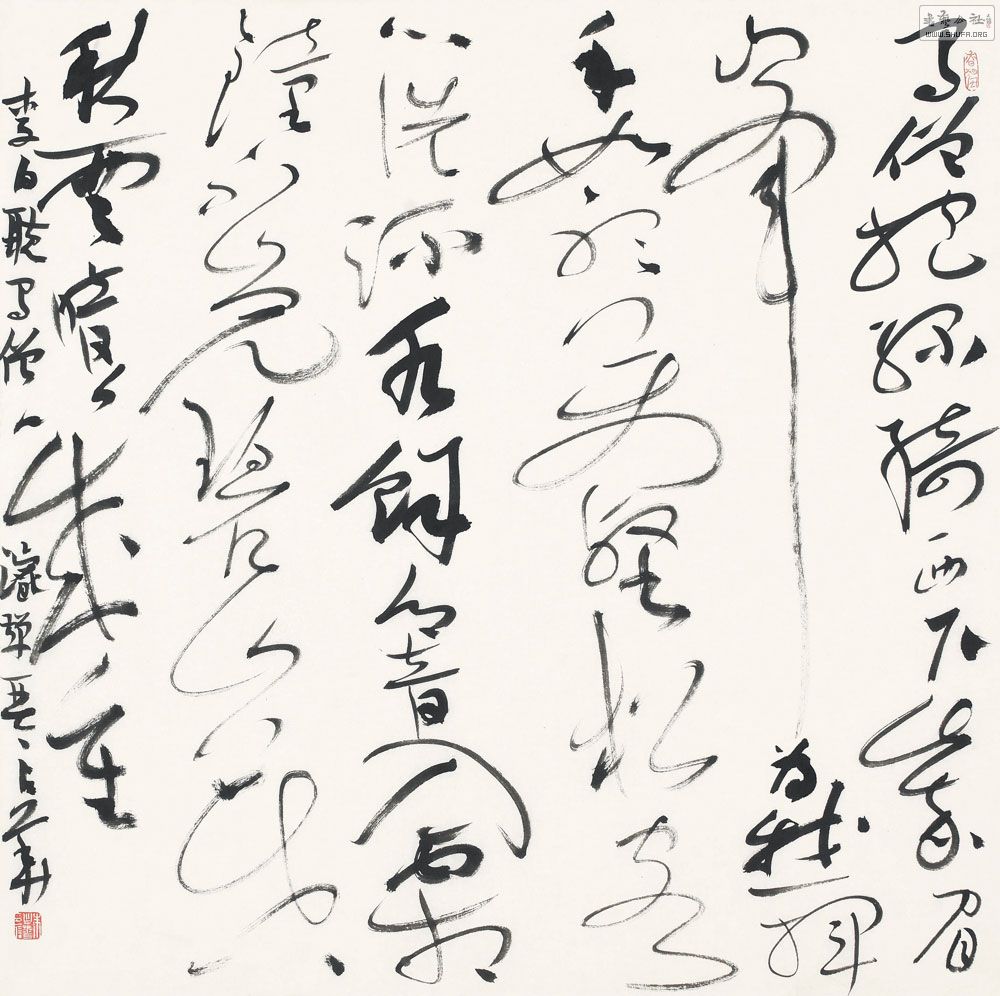 蜀僧抱綠綺西下峨眉
峰為我一揮
手如聽萬壑松客
心洗流水餘響入霜
鐘不覺碧山暮
秋雲暗幾重
李白聽蜀僧濬彈琴
WWW.SHUFA.ORG